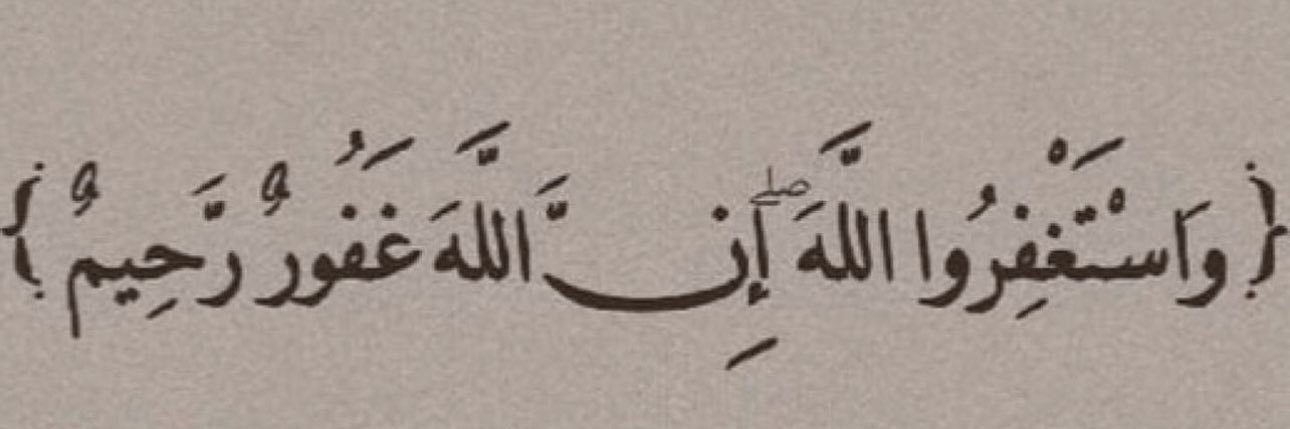 { وَاسْتَغْفِرُوا اللَّهَ ۖ إِنَّ اللَّهَ غَفُورٌ رَّحِيمٌ }